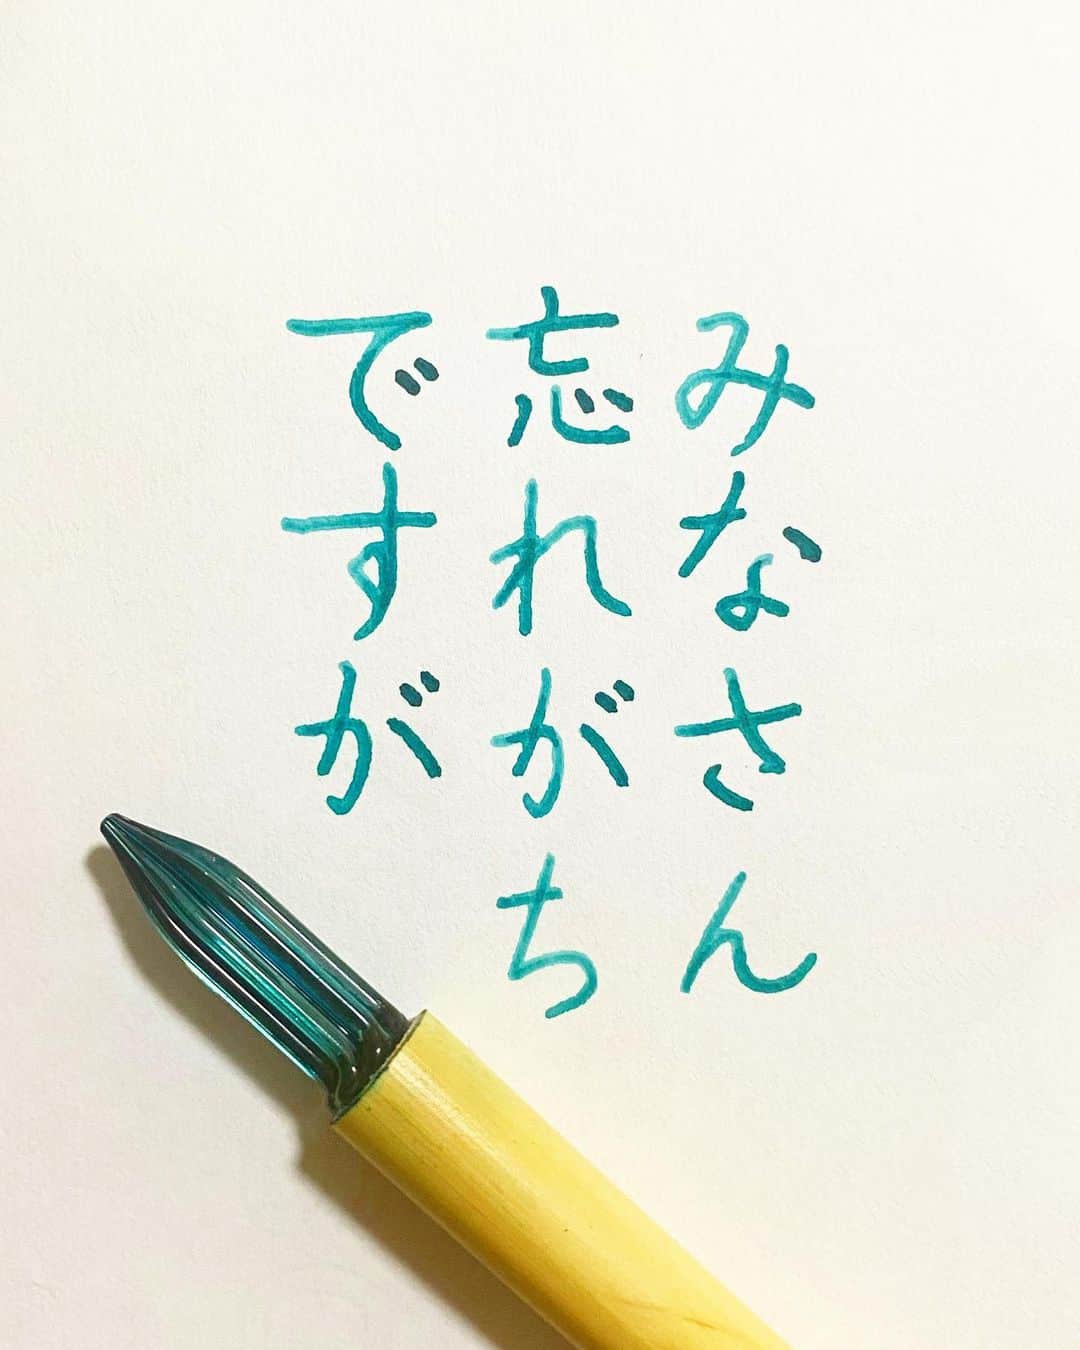 みなさん
忘れがち
ですが